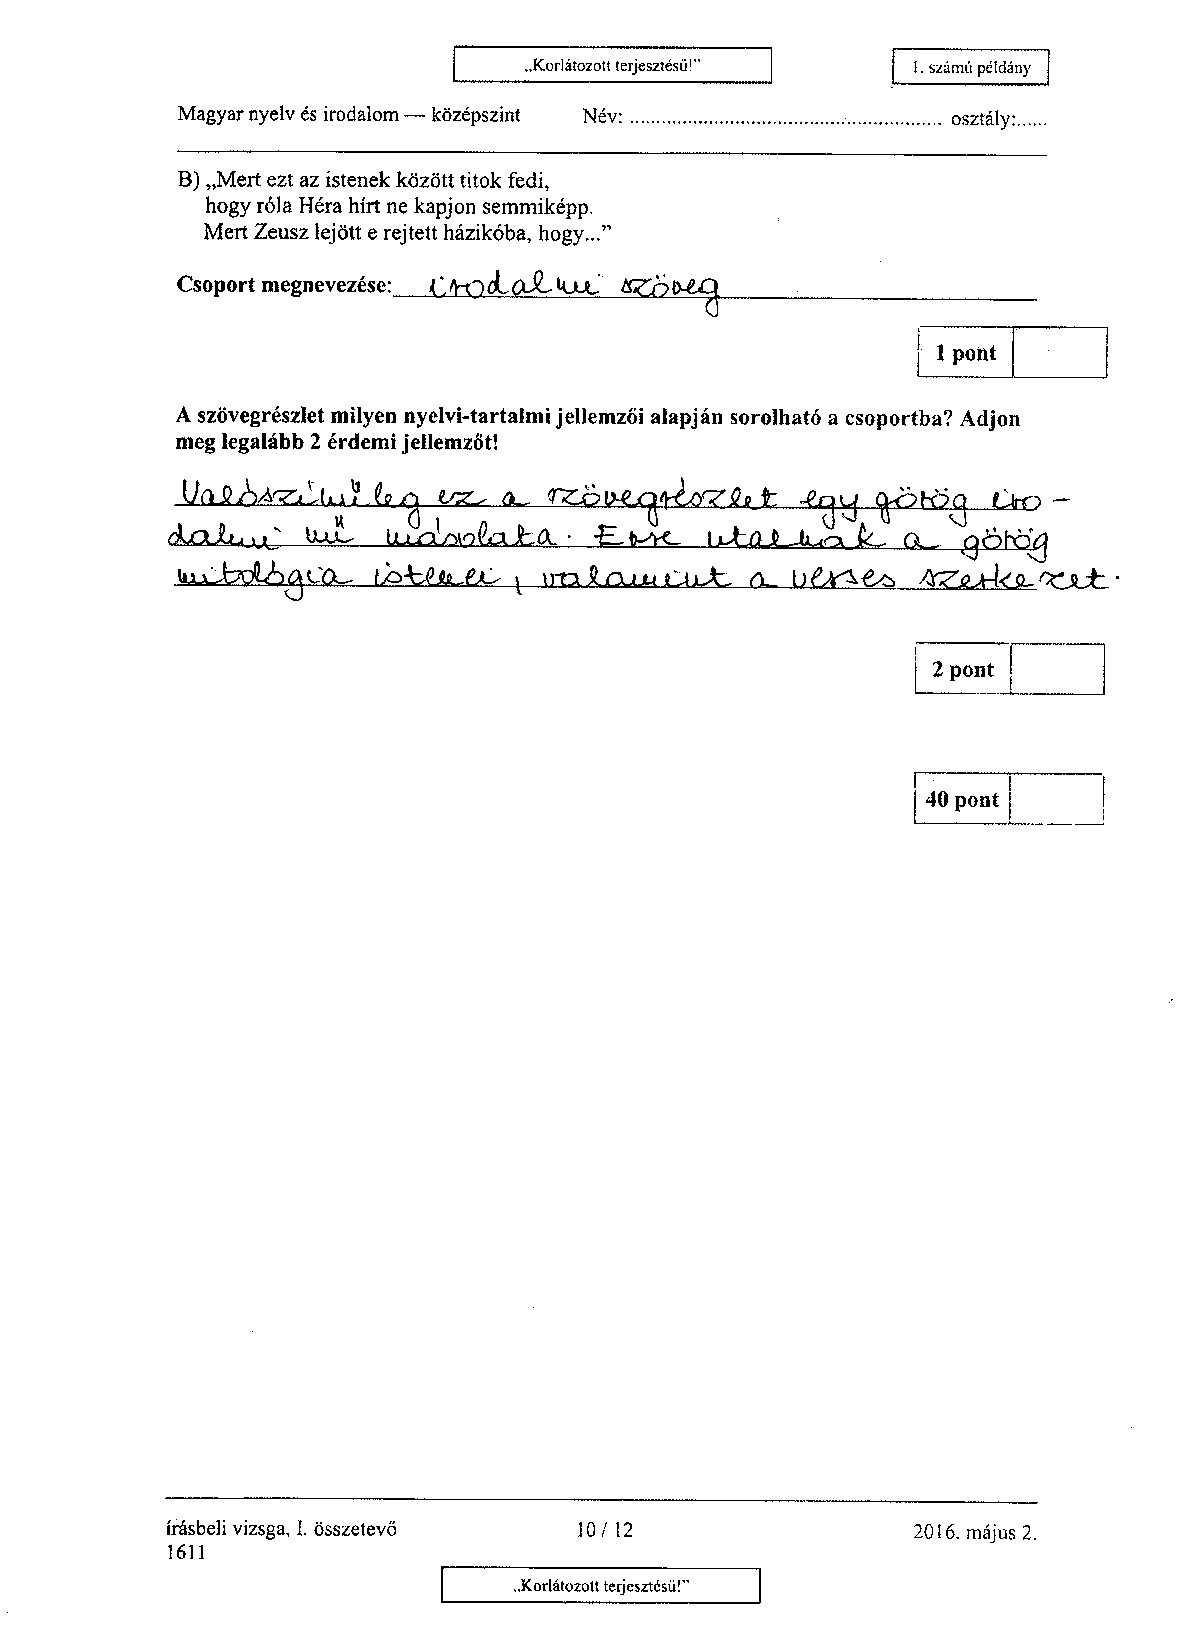 „Korlátozott terjesztésű!”
1. számú példány
Magyar nyelv és irodalom — középszint Név: ........................................................... osztály:......
B) „Mert ezt az istenek között titok fedi,
hogy róla Héra hírt ne kapjon semmiképp.
Mert Zeusz lejött e rejtett házikóba, hogy...”
Csoport megnevezése: irodalmi szöveg
1 pont
A szövegrészlet milyen nyelvi-tartalmi jellemzői alapján sorolható a csoportba? Adjon
meg legalább 2 érdemi jellemzőt!
Valószínűleg ez a szövegrészlet egy görög iro-
dalmi mű másolata. Erre utalnak a görög
mitológia istenei, valamint a verses szerkezet.
2 pont
40 pont
írásbeli vizsga, I. összetevő 10 / 12 2016. május 2.
1611
„Korlátozott terjesztésű!”